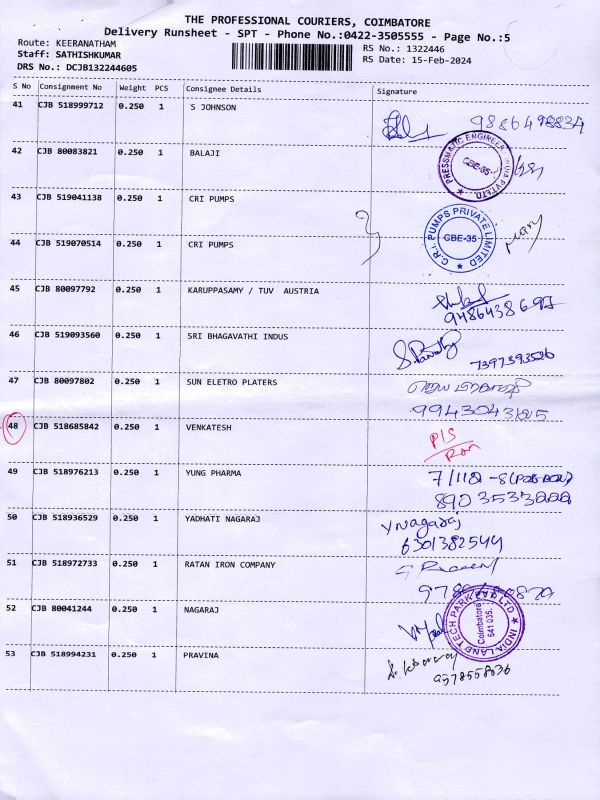 THE PROFESSIONAL COURIERS, COIMBATORE
Delivery Runsheet - SPT - Phone No.:0422-3505555 - Page No.:5
Route: KEERANATHAM
RS No.: 1322446
Staff: SATHISHKUMAR
RS Date: 15-Feb-2024
DRS No.: DCJB132244605
S No Consignment No Weight PCS Consignee Details Signature
41 CJB 518999712 0.250 1 S JOHNSON
42 CJB 80083821 0.250 1 BALAJI
PRESSMATIC ENGINEER INDIA PVT LTD CBE-35
43 CJB 519041138 0.250 1 CRI PUMPS
C.R.I. PUMPS PRIVATE LIMITED CBE-35
44 CJB 519070514 0.250 1 CRI PUMPS
45 CJB 80097792 0.250 1 KARUPPASAMY / TUV AUSTRIA
46 CJB 519093560 0.250 1 SRI BHAGAVATHI INDUS
47 CJB 80097802 0.250 1 SUN ELETRO PLATERS
48 CJB 518685842 0.250 1 VENKATESH
49 CJB 518976213 0.250 1 YUNG PHARMA
50 CJB 518936529 0.250 1 YADHATI NAGARAJ
Y Nagaraj
6301382544
51 CJB 518972733 0.250 1 RATAN IRON COMPANY
52 CJB 80041244 0.250 1 NAGARAJ
INDIA LAND TECH PARK PVT LTD Coimbatore 641 035.
53 CJB 518994231 0.250 1 PRAVINA